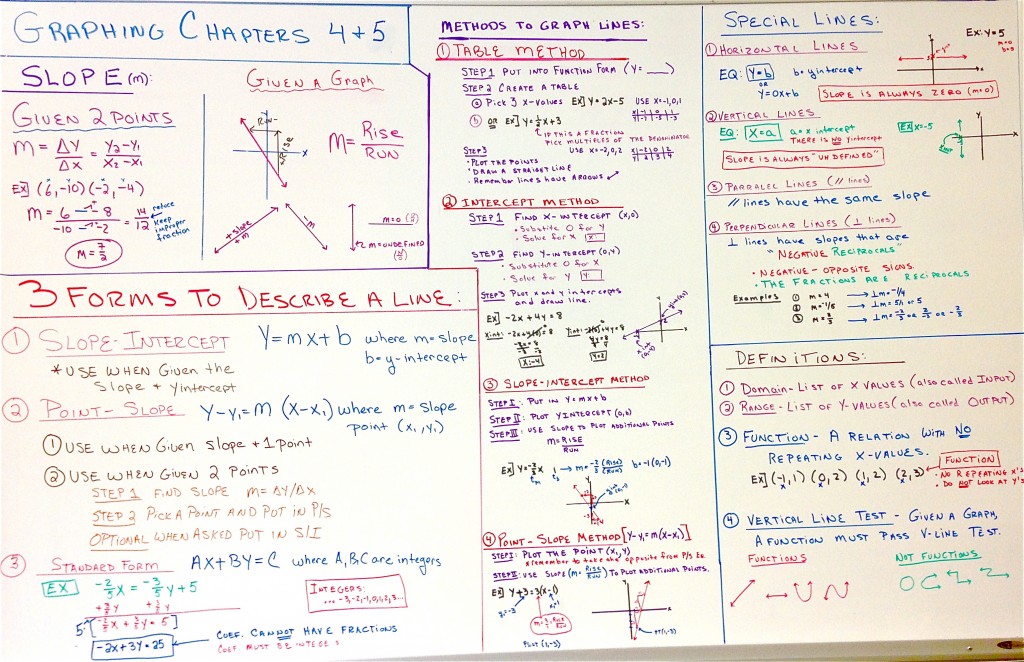 GRAPHING CHAPTERS 4+5
SLOPE (m):
GIVEN 2 POINTS
M = ΔY/ΔX = Y2-Y1/X2-X1
EX) (6,-10) (-2,-4)
M = 6 - -8 / -10 - -2 = 14/12
reduce
Keep
improper
fraction
M = 7/2
GIVEN A GRAPH
Run
Rise
X
M = Rise/RUN
+ slope
+m
-m
M=0
M=UNDEFINED
3 FORMS TO DESCRIBE A LINE:
① SLOPE-INTERCEPT Y=mx+b where m=slope
b=y-intercept
* USE WHEN Given the
Slope + Yintercept
② POINT-SLOPE Y-Y1=M(X-X1) where m=slope
point (x1,y1)
① USE WHEN Given slope +1 point
② USE WHEN GIVEN 2 POINTS
STEP 1 FIND SLOPE M=ΔY/ΔX
STEP 2 PICK A POINT AND PUT IN P/S
OPTIONAL WHEN ASKED PUT IN S/I
③ STANDARD FORM AX+BY=C where A,B,C are integers
EX -2/5 X = -3/5 Y+5
+3/5 Y +3/5 Y
5·[-2/5 X + 3/5 Y = 5]
-2X+3Y=25
INTEGERS
... -3,-2,-1,0,1,2,3...
COEF. CANNOT HAVE FRACTIONS
COEF. MUST BE INTEGERS
METHODS TO GRAPH LINES:
① TABLE METHOD
STEP 1 PUT INTO FUNCTION FORM (Y=___)
STEP 2 CREATE A TABLE
ⓐ Pick 3 x-values EX] Y=2x-5 USE X=-1,0,1
ⓑ OR EX] Y=½x+3
IF THIS A FRACTION
PICK MULTIPLES OF THE DENOMINATOR
USE X=-2,0,2
STEP 3
• PLOT THE POINTS
• DRAW A STRAIGHT LINE
• Remember lines have ARROWS
② INTERCEPT METHOD
STEP 1 FIND X-INTERCEPT (X,0)
• Substitute 0 for Y
• Solve for X
STEP 2 FIND Y-INTERCEPT (0,Y)
• Substitute 0 for X
• Solve for Y
STEP 3 Plot x and y intercepts
and draw line.
EX] -2x+4y=8
Xint: -2x+4(0)=8
X=-4
Yint: -2(0)+4y=8
Y=2
③ SLOPE-INTERCEPT METHOD
STEP I: PUT IN Y=mx+b
STEP II: PLOT YINTERCEPT (0,b)
STEP III: USE SLOPE TO PLOT ADDITIONAL POINTS
M=RISE/RUN
EX] Y=-2/3 X - 1 → m=-2/3 (RISE/RUN) b=-1 (0,-1)
④ POINT-SLOPE METHOD [Y-Y1=m(X-X1)]
STEP I: PLOT THE POINT (X1,Y1)
*remember to take the opposite from P/S Eq.
STEP II: USE SLOPE (m=RISE/RUN) TO PLOT ADDITIONAL POINTS.
EX] Y+3=3(X-1)
PLOT (1,-3)
PT(1,-3)
SPECIAL LINES:
① HORIZONTAL LINES
EX: Y=5
m=0
b=5
EQ: Y=b b=yintercept
OR
Y=0x+b
SLOPE IS ALWAYS ZERO (m=0)
② VERTICAL LINES
EQ: X=a a=x intercept
THERE IS NO yintercept
EX X=-5
SLOPE IS ALWAYS "UNDEFINED"
③ PARRALEL LINES (// lines)
// lines have the same slope
④ PERPENDICULAR LINES (⊥ lines)
⊥ lines have slopes that are
"NEGATIVE RECIPROCALS"
• NEGATIVE - OPPOSITE SIGNS.
• THE FRACTIONS ARE RECIPROCALS
Examples ① m=4 → ⊥m=-1/4
② m=-1/5 → ⊥m=5/1 or 5
③ → ⊥m=
DEFINITIONS:
① Domain-LIST OF X VALUES (also called INPUT)
② RANGE-LIST OF Y-VALUES (also called OUTPUT)
③ FUNCTION - A RELATION WITH NO
REPEATING X-VALUES.
EX] (-1,1) (0,2) (1,2) (2,3)
FUNCTION
• NO REPEATING X'S
• DO NOT LOOK AT Y'S
④ VERTICAL LINE TEST - GIVEN A GRAPH,
A FUNCTION MUST PASS V-LINE TEST.
FUNCTIONS
NOT FUNCTIONS